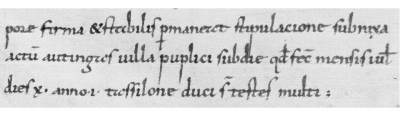 pore firma & stabilis p̄maneret stipulacione subnixa
actū autingas uilla puplici subdie qđ fec̄ mensis iul̄
dies x · anno · i · tassilone duci s̄ testes multi :